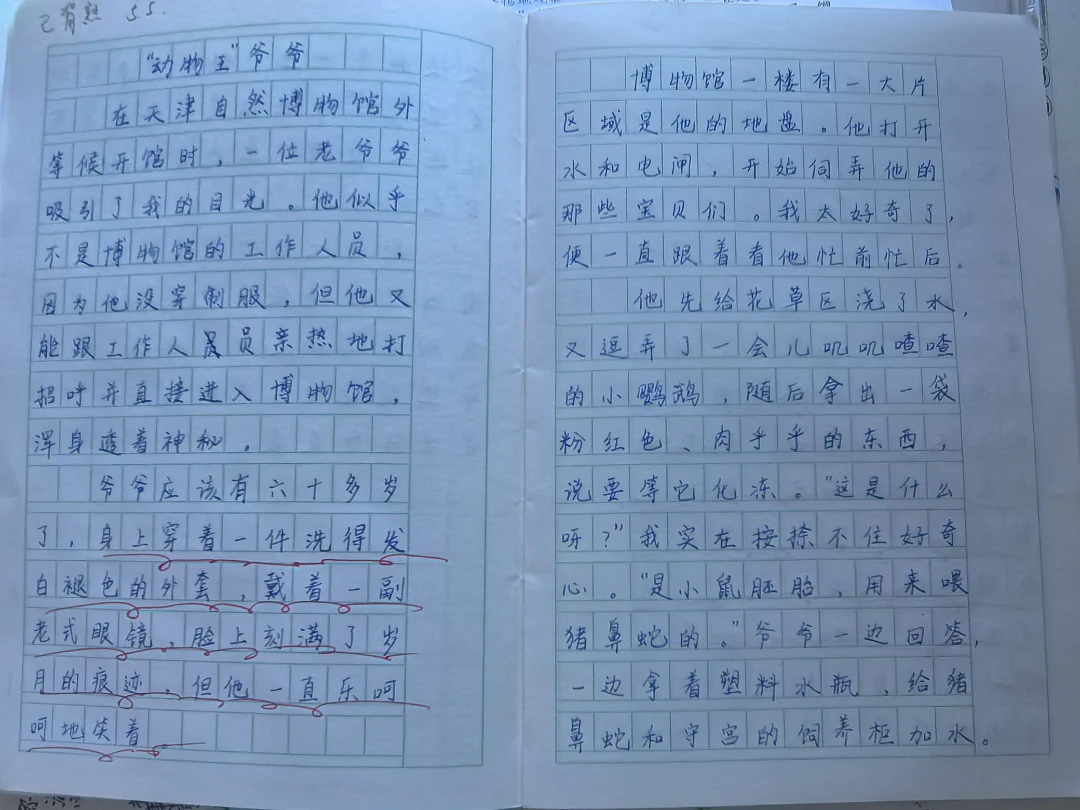 5.5.
“动物王”爷爷
在天津自然博物馆外
等候开馆时，一位老爷爷
吸引了我的目光。他似乎
不是博物馆的工作人员，
因为他没穿制服，但他又
能跟工作人员亲热地打
招呼并直接进入博物馆，
浑身透着神秘。
爷爷应该有六十多岁
了，身上穿着一件洗得发
白褪色的外套，戴着一副
老式眼镜，脸上刻满了岁
月的痕迹，但他一直乐呵
呵地笑着
博物馆一楼有一大片
区域是他的地盘。他打开
水和电闸，开始伺弄他的
那些宝贝们。我太好奇了，
便一直跟着看他忙前忙后。
他先给花草区浇了水，
又逗弄了一会儿叽叽喳喳
的小鹦鹉，随后拿出一袋
粉红色、肉乎乎的东西，
说要等它化冻。“这是什么
呀？”我实在按捺不住好奇
心。“是小鼠胚胎，用来喂
猪鼻蛇的。”爷爷一边回答，
一边拿着塑料水瓶，给猪
鼻蛇和守宫的饲养柜加水。